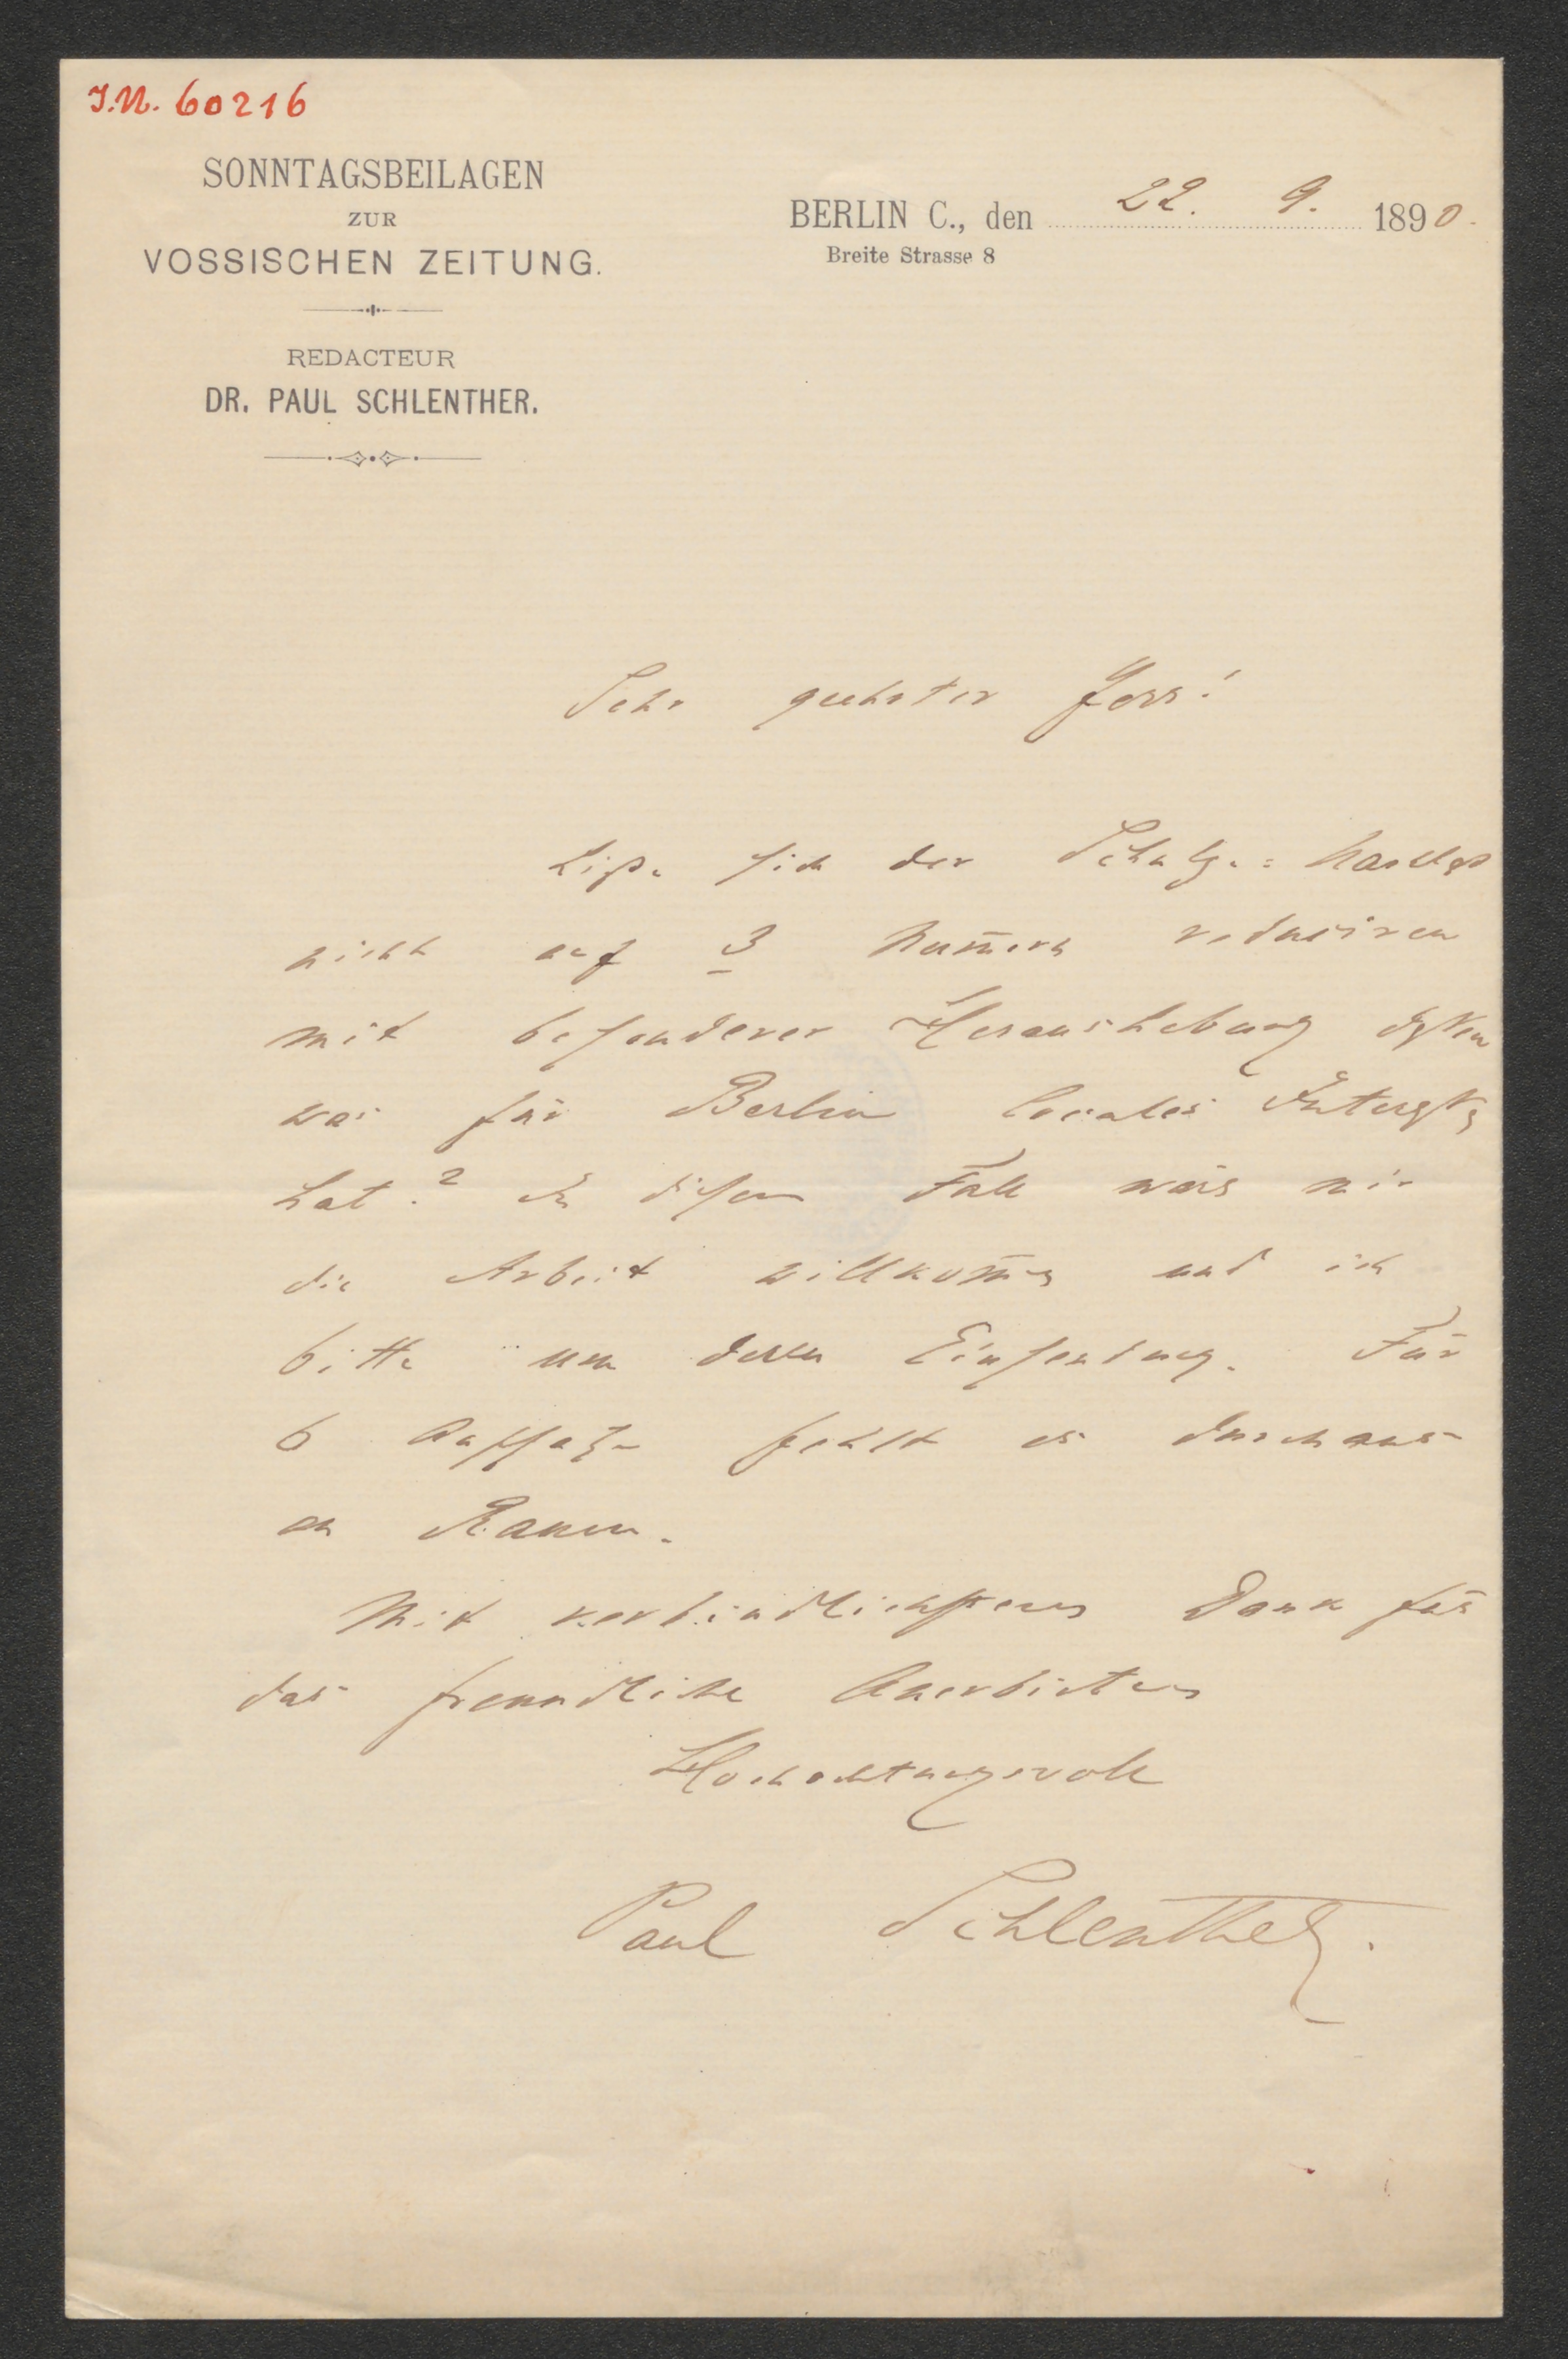 J.N. 60216
SONNTAGSBEILAGEN
ZUR
VOSSISCHEN ZEITUNG.
REDACTEUR
DR. PAUL SCHLENTHER.
BERLIN C., den 22. 9. 1890.
Breite Strasse 8
Sehr geehrter Herr!
Ließe sich der
nicht auf 3 Num̅ern reduciren
mit besonderer Heraushebung dessen
was für Berlin locales Interesse
hat? In diesem Fall wär mir
die Arbeit willkom̅en und ich
bitte um deren Einsendung. Für
6 Aufsätze fehlt es durchaus
an Raum.
Mit verbindlichstem Dank für
das freundliche Anerbieten
Hochachtungsvoll
Paul Schlenther.